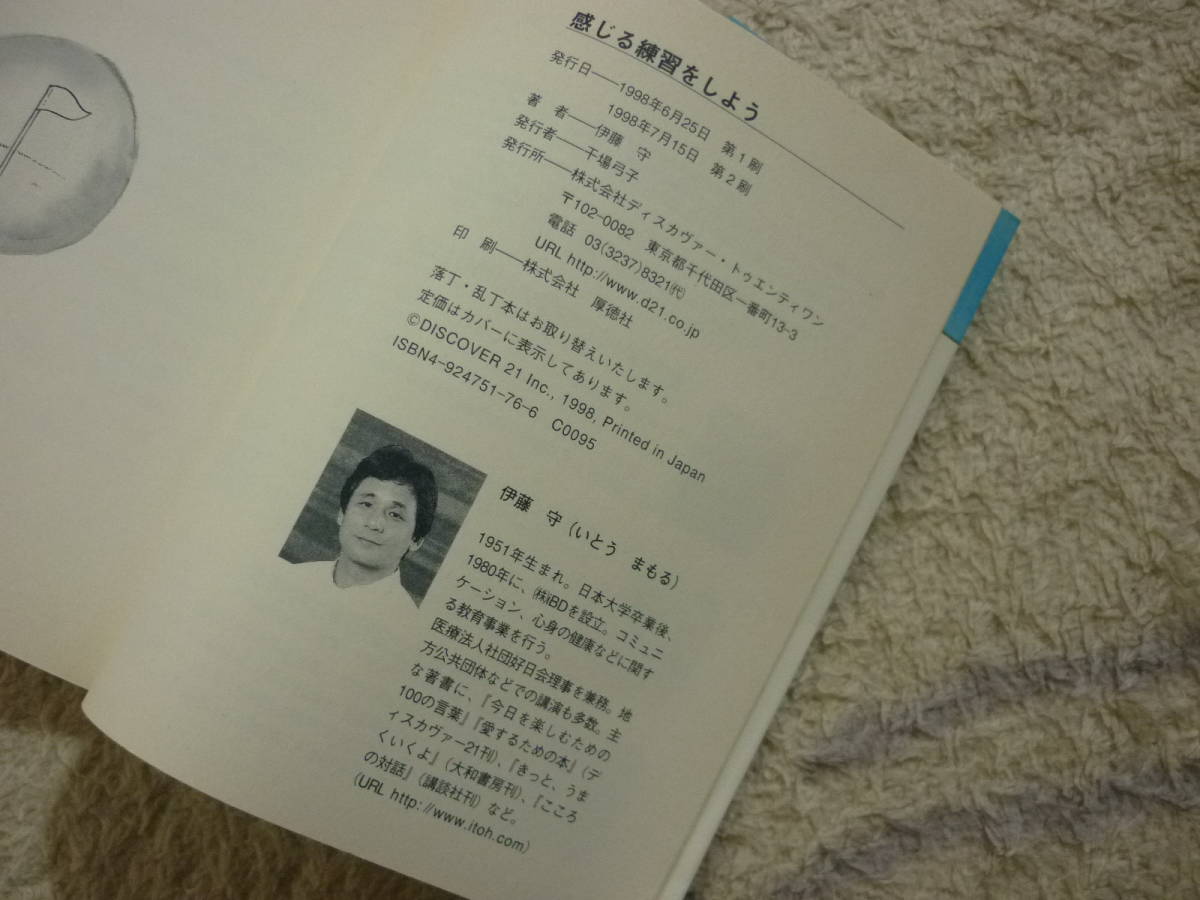 感じる練習をしよう
発行日――1998年6月25日　第1刷
1998年7月15日　第2刷
著　者――伊藤　守
発行者――干場弓子
発行所――株式会社ディスカヴァー・トゥエンティワン
〒102-0082　東京都千代田区一番町13-3
電話　03(3237)8321㈹
URL http://www.d21.co.jp
印　刷――株式会社　厚徳社
落丁・乱丁本はお取り替えいたします。
定価はカバーに表示してあります。
©DISCOVER 21 Inc., 1998, Printed in Japan
ISBN4-924751-76-6　C0095
伊藤　守（いとう　まもる）
1951年生まれ。日本大学卒業後、
1980年に、㈱iBDを設立。コミュニ
ケーション、心身の健康などに関す
る教育事業を行う。
医療法人社団好日会理事を兼務。地
方公共団体などでの講演も多数。主
な著書に、『今日を楽しむための
100の言葉』『愛するための本』（デ
ィスカヴァー21刊）、『きっと、うま
くいくよ』（大和書房刊）、『こころ
の対話』（講談社刊）など。
(URL http://www.itoh.com)